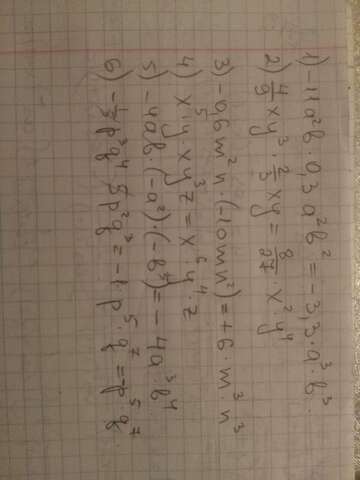 1) -11a²b · 0,3 a²b² = -3,3 · a³ · b³.
2) 4/9 xy³ · 2/3 xy = 8/27 · x² y⁴
3) -0,6 m² n · (-10 m n²) = +6 · m³ n³
4) x⁵y · xy³z = x⁶ · y⁴ · z
5) -4ab · (-a²) · (-b³) = -4a³ · b⁴
6) -1/5 p³q⁴ · 5p²q³ = -1 · p⁵ · q⁷ = -p⁵q⁷